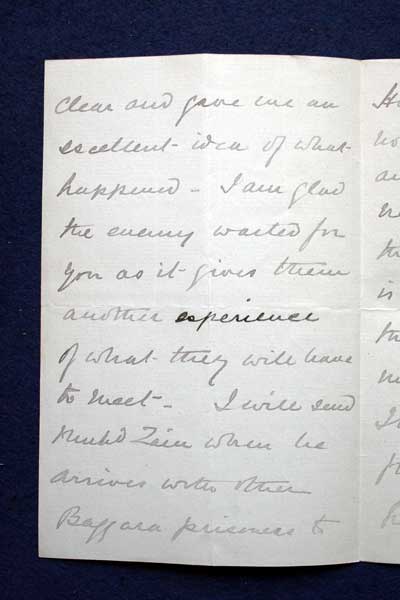 clear and gave me an
excellent idea of what
happened - I am glad
the enemy waited for
you as it gives them
another experience
of what they will have
to meet - I will send
Muhd Zain when he
arrives with other
Baggara prisoners to
is